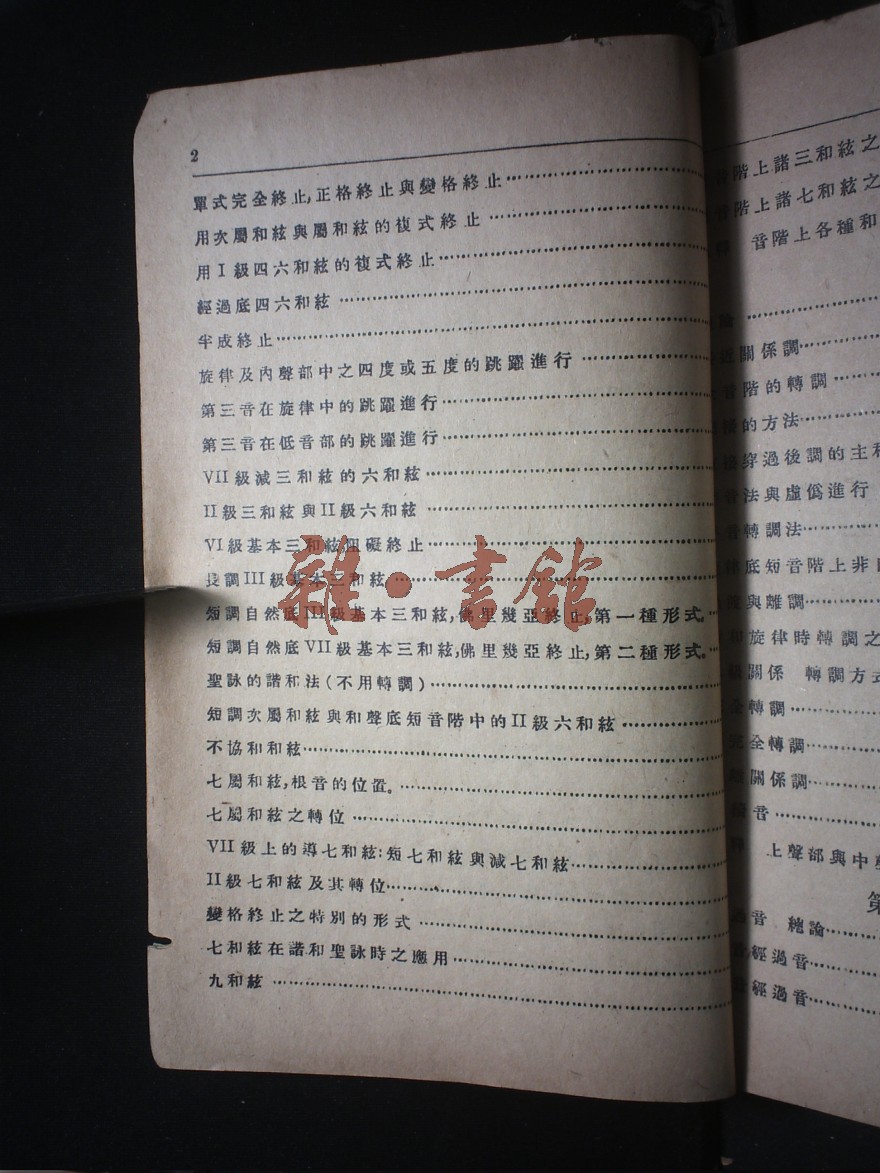 2
單式完全終止,正格終止與變格終止
用次屬和絃與屬和絃的複式終止
用I級四六和絃的複式終止
經過底四六和絃
半成終止
旋律及內聲部中之四度或五度的跳躍進行
第三音在旋律中的跳躍進行
第三音在低音部的跳躍進行
VII級減三和絃的六和絃
II級三和絃與II級六和絃
VI級基本三和絃阻礙終止
長調III級基本三和絃
短調自然底III級基本三和絃,佛里幾亞終止,第一種形式。
短調自然底VII級基本三和絃,佛里幾亞終止,第二種形式。
聖詠的諧和法(不用轉調)
短調次屬和絃與和聲底短音階中的II級六和絃
不協和和絃
七屬和絃,根音的位置。
七屬和絃之轉位
VII級上的導七和絃:短七和絃與減七和絃
II級七和絃及其轉位
變格終止之特別的形式
七和絃在諧和聖詠時之應用
九和絃
雜·書館
階上諸三和絃之
階上諸七和絃之
音階上各種和
論
關係調
音階的轉調
的方法
穿過後調的主和
法與虛僞進行
音轉調法
底短音階上非
與離調
旋律時轉調之
關係 轉調方式
轉調
全轉調
關係調
音
上聲部與中聲
第
音 總論
經過音
經過音